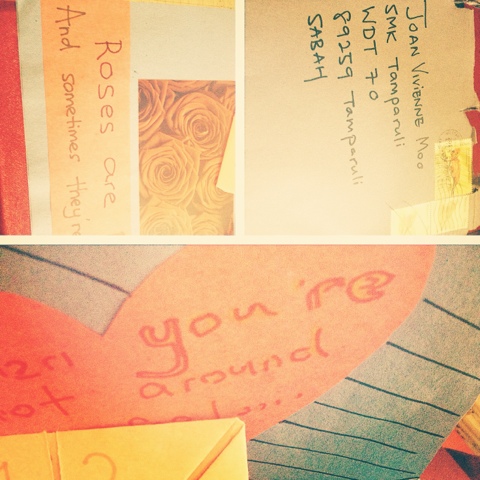 Roses are
And sometimes they'r
JOAN VIVIENNE MOO
SMK Tamparuli
WDT 70
89259 Tamparuli
SABAH
you're
around